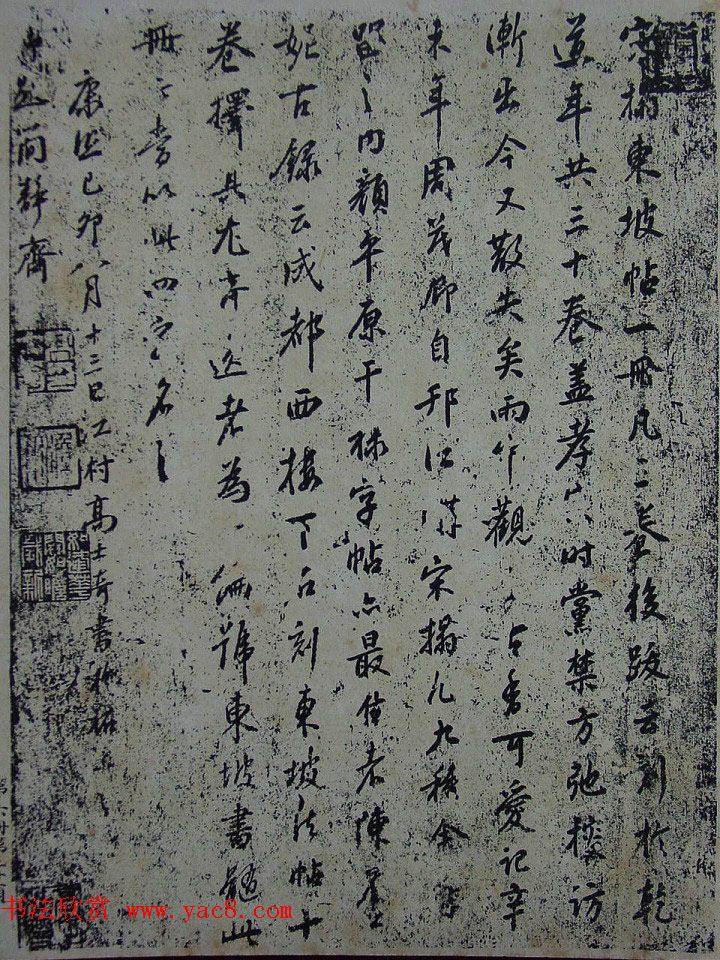 宋搨東坡帖一冊凡二卷後跋云刻於乾
道年共三十卷蓋孝宗時黨禁方弛搜訪
漸出今又散失矣雨中觀 古香可愛記辛
未年周茂卿自邗江 宋搨凡九種余
留之內顏平原干祿字帖亦最佳者陳眉公
妮古錄云成都西樓下石刻東坡法帖十
卷擇其尤奇逸者為一編號東坡書髓此
冊之當以此四字名之
康熙己卯八月十三日江村高士奇書於柘
簡靜齋
书法欣赏 www.yac8.com